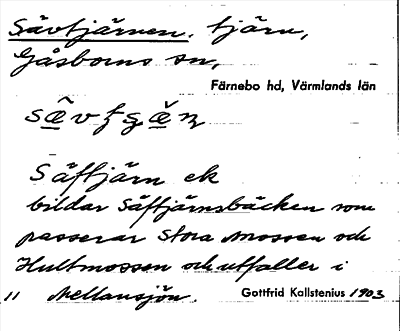 Sävtjärnen. tjärn,
Gåsborns sn,
Färnebo hd, Värmlands län
Säftjärn ek
bildar Säftjärnsbäcken som
passerar Stora Mossen och
Hultmossen och utfaller i
" Mellansjön.
Gottfrid Kallstenius 1903